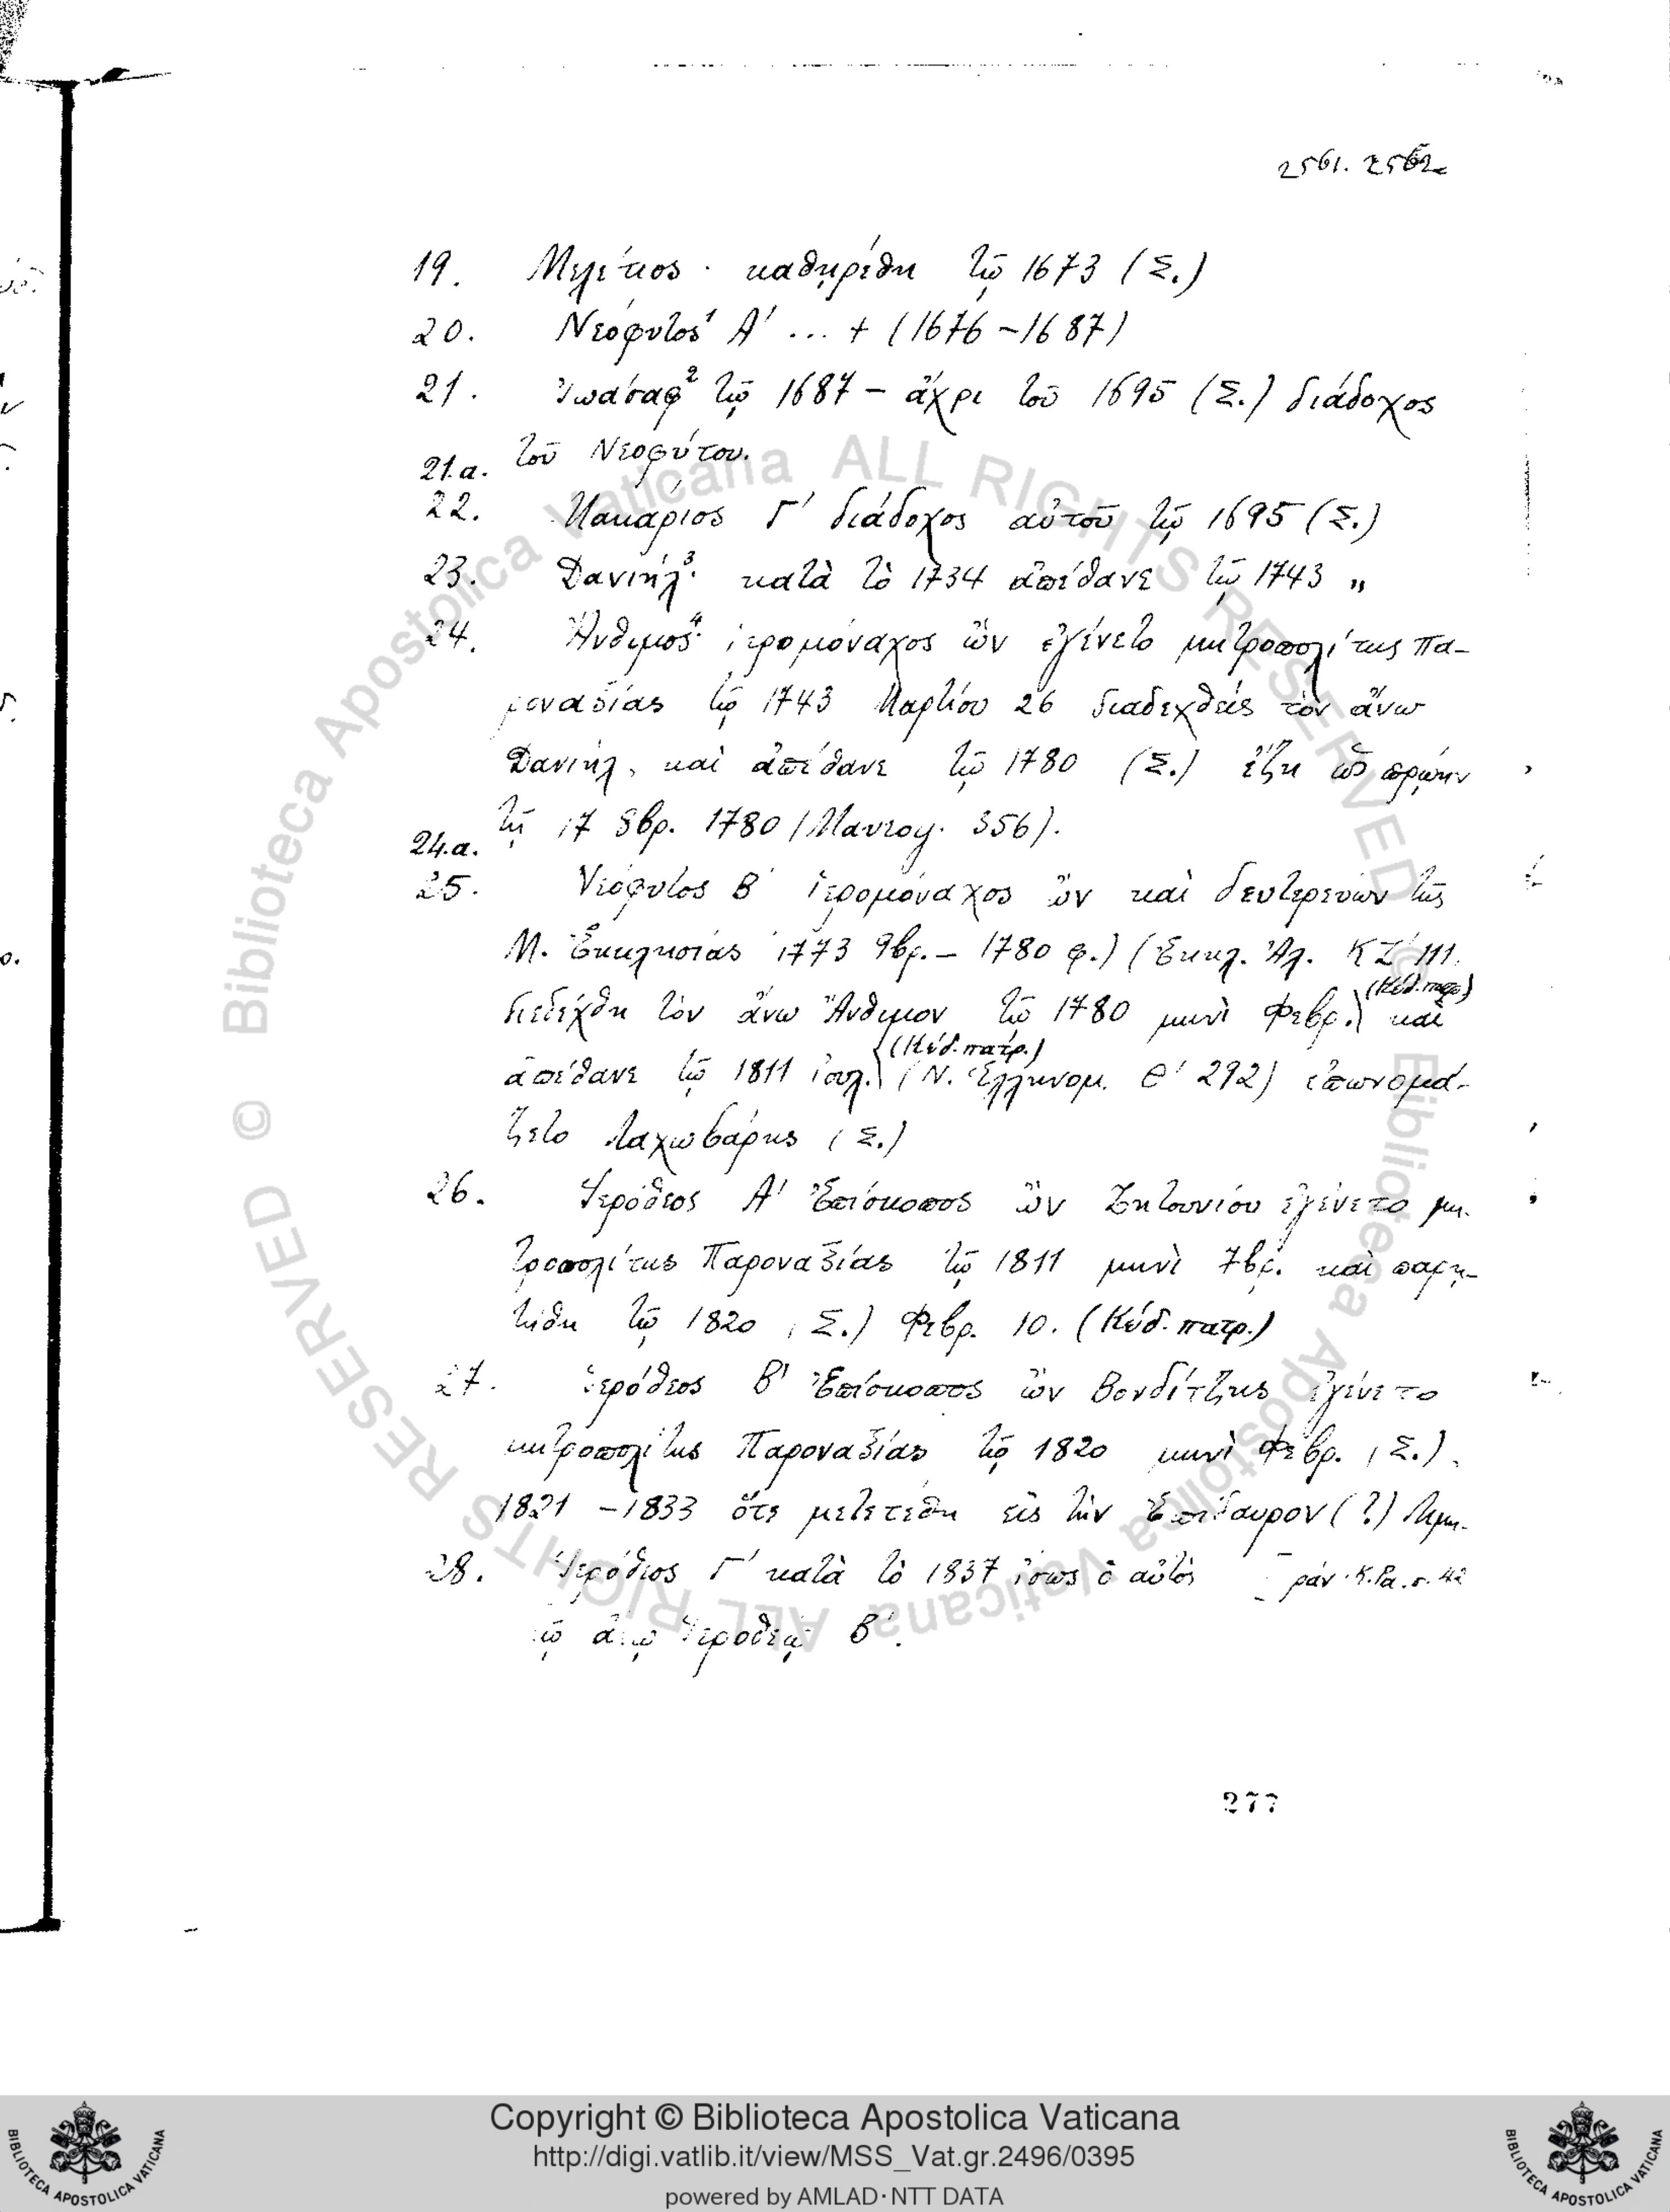 2561. 2562
19. Μελέτιος · καθῃρέθη τῷ 1673 (Σ.)
20. Νεόφυτος¹ Α΄ ... + (1676 – 1687)
21. Ἰωάσαφ² τῷ 1687 – ἄχρι τοῦ 1695 (Σ.) διάδοχος
τοῦ Νεοφύτου.
21.α.
22. Μακάριος Γ΄ διάδοχος αὐτοῦ τῷ 1695 (Σ.)
23. Δανιήλ³· κατὰ τὸ 1734 ἀπέθανε τῷ 1743 „
24. Ἄνθιμος⁴· ἱερομόναχος ὢν ἐγένετο μητροπολίτης Πα-
ροναξίας τῷ 1743 Μαρτίου 26 διαδεχθεὶς τὸν ἄνω
Δανιήλ, καὶ ἀπέθανε τῷ 1780 (Σ.) ἔζη ὡς πρώην
τῇ 17 8βρ. 1780 (Μανουήλ. 356).
24.α.
25. Νεόφυτος Β΄ ἱερομόναχος ὢν καὶ δευτερεύων τῆς
Μ. Ἐκκλησίας 1773 9βρ. – 1780 φ.) (Ἐκκλ. Ἀλ. ΚΖ΄ 111.
διεδέχθη τὸν ἄνω Ἄνθιμον τῷ 1780 μηνὶ Φεβρ. (Κώδ. πατρ.) καὶ
ἀπέθανε τῷ 1811 ἰουλ. (Κώδ. πατρ.) (Ν. Ἑλληνομ. Θ΄ 292) ἐπωνομά-
ζετο Λαχωβάρης (Σ.)
26. Ἱερόθεος Α΄ Ἐπίσκοπος ὢν Ζητουνίου ἐγένετο μη-
τροπολίτης Παροναξίας τῷ 1811 μηνὶ 7βρ. καὶ παρῃ-
τήθη τῷ 1820 (Σ.) Φεβρ. 10. (Κώδ. πατρ.)
27. Ἱερόθεος Β΄ Ἐπίσκοπος ὢν Βονδίτζης ἐγένετο
μητροπολίτης Παροναξίας τῷ 1820 μηνὶ Φεβρ. (Σ.).
1821 – 1833 ὅτε μετετέθη εἰς τὴν Ἐπίδαυρον (?) Λιμη-
28. Ἱερόθεος Γ΄ κατὰ τὸ 1837 ἴσως ὁ αὐτὸς ράν. Κ. Ρα. σ. 42
τῷ ἄνω Ἱεροθέῳ Β΄.
277
© Biblioteca Apostolica Vaticana ALL RIGHTS RESERVED
© Biblioteca Apostolica Vaticana ALL RIGHTS RESERVED
Copyright © Biblioteca Apostolica Vaticana
http://digi.vatlib.it/view/MSS_Vat.gr.2496/0395
powered by AMLAD·NTT DATA
BIBLIOTECA APOSTOLICA VATICANA
BIBLIOTECA APOSTOLICA VATICANA